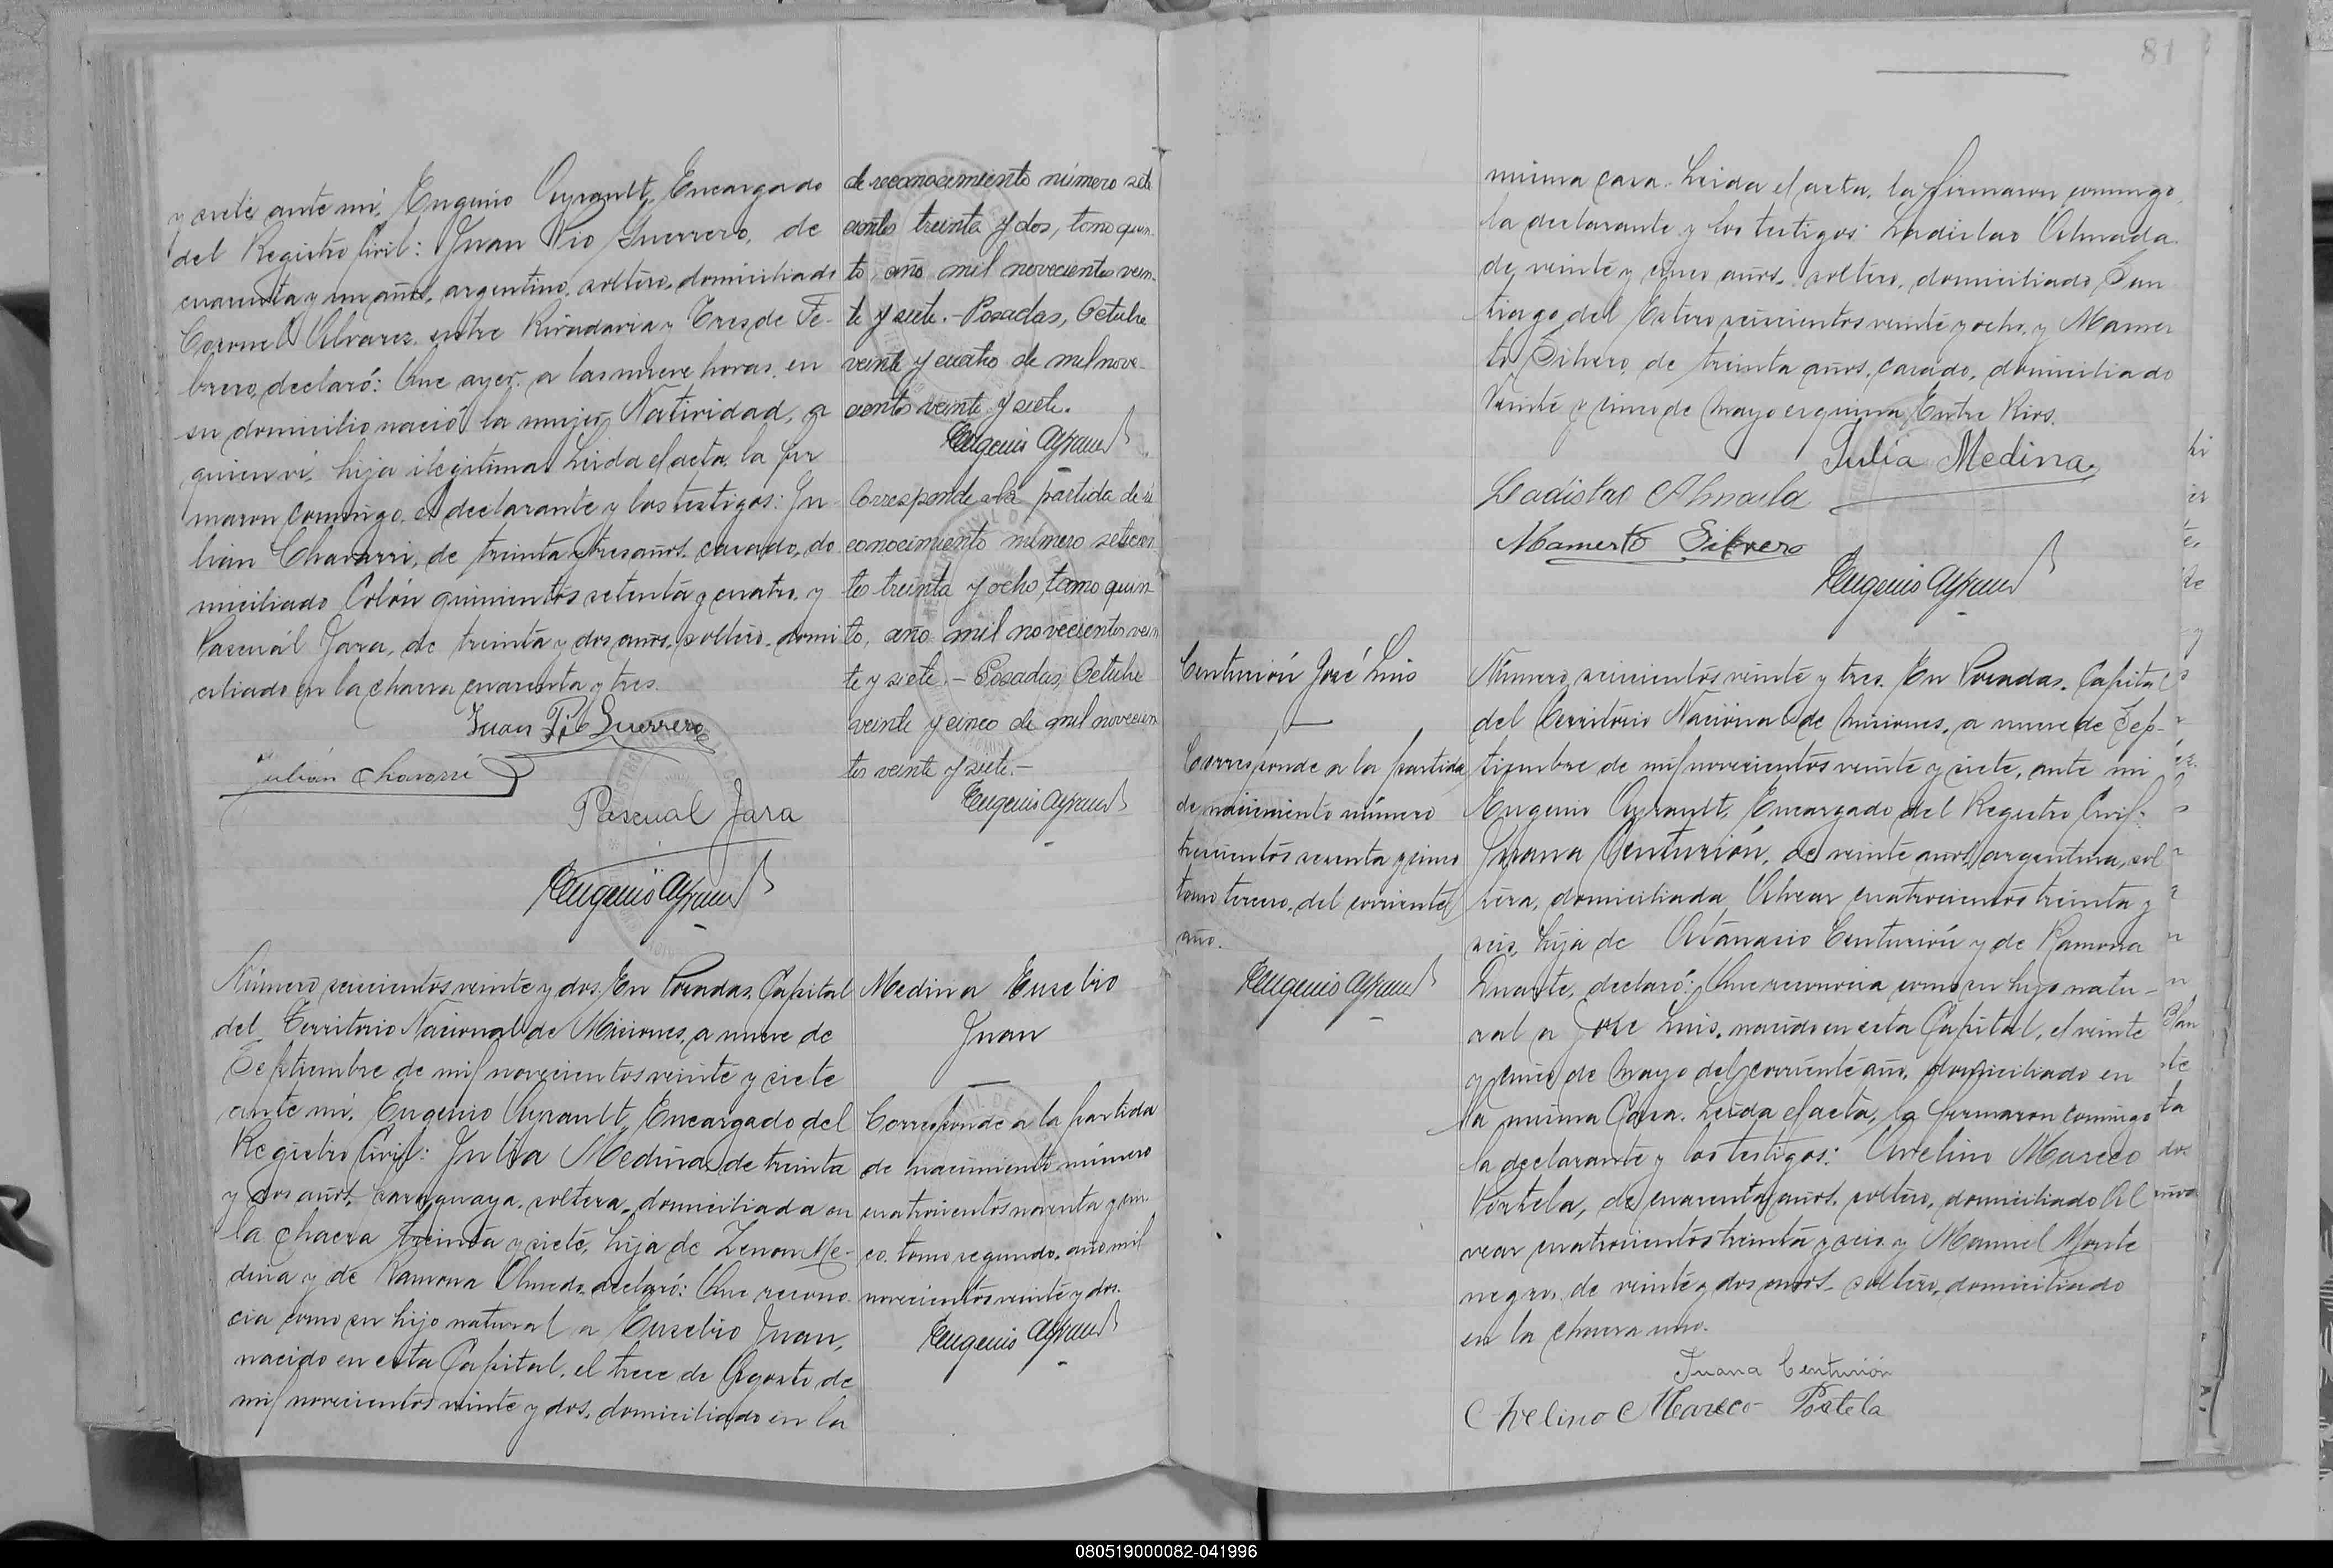 y siete ante mi, Eugenio Ayrault, Encargado
del Registro Civil: Juan Pio Guerrero, de
cuarenta y un años, argentino, soltero, domiciliado
Coronel Alvarez entre Rivadavia y Tres de Fe-
brero, declaró: Que ayer a las nueve horas, en
su domicilio nació la mujer Natividad, a
quien ví, hija ilegitima. Leida el acta, la fir
maron conmigo, el declarante y los testigos: Ju
lián Chavarri, de treinta y tres años, casado, do
miciliado Colón quinientos setenta y cuatro, y
Pascuál Jara, de treinta y dos años, soltero, domi
ciliado en la chacra cuarenta y tres.
Juan Pio Guerrero
Julián Chavarri
Pascual Jara
Eugenio Ayrault
Número seiscientos veinte y dos. En Posadas, Capital
del Territorio Nacional de Misiones, a nueve de
Septiembre de mil novecientos veinte y siete
ante mi, Eugenio Ayrault, Encargado del
Registro Civil: Julia Medina, de treinta
y dos años, paraguaya, soltera, domiciliada en
la chacra treinta y siete, hija de Zenon Me-
dina y de Ramona Olmedo, declaró: Que recono
cia como su hijo natural a Eusebio Juan,
nacido en esta Capital, el trece de Agosto de
mil novecientos veinte y dos, domiciliado en la
de reconocimiento número sete
cientos treinta y dos, tomo quin-
to, año mil novecientos vein-
te y siete.- Posadas, Octubre
veinte y cuatro de mil nove-
cientos veinte y siete.
Eugenio Ayrault
Corresponde a la partida de re
conocimiento número setecien
tos treinta y ocho, tomo quin
to, año mil novecientos vein
te y siete.- Posadas, Octubre
veinte y cinco de mil novecien
tos veinte y siete.-
Eugenio Ayrault
Medina Eusebio
Juan
Corresponde a la partida
de nacimiento número
cuatrocientos noventa y cin
co, tomo segundo, año mil
novecientos veinte y dos.
Eugenio Ayrault
81
misma casa. Leida el acta, la firmaron conmigo,
la declarante y los testigos: Ladislao Almada
de veinte y cinco años, soltero, domiciliado San
tiago del Estero seiscientos veinte y ocho, y Mamer
to Silvero, de treinta años, casado, domiciliado
Veinte y cinco de Mayo esquina Entre Rios.
Julia Medina
Ladislao Almada
Mamerto Silvero
Eugenio Ayrault
Centurión José Luis
Corresponde a la partida
de nacimiento número
trescientos sesenta y cinco
tomo tercero, del corriente
año.
Eugenio Ayrault
Número seiscientos veinte y tres. En Posadas, Capital
del Territorio Nacional de Misiones, a nueve de Sep-
tiembre de mil novecientos veinte y siete, ante mi
Eugenio Ayrault, Encargado del Registro Civil:
Juana Centurión, de veinte años, argentina, sol
tera, domiciliada Alvear cuatrocientos treinta y
seis, hija de Atanasio Centurión y de Ramona
Duarte, declaró: Que reconocia como su hijo natu-
ral a José Luis, nacido en esta Capital, el veinte
y cinco de Mayo del corriente año, domiciliado en
la misma Casa. Leida el acta, la firmaron conmigo
la declarante y los testigos: Avelino Mareco
Portela, de cuarenta años, soltero, domiciliado Al
vear cuatrocientos treinta y seis y Manuel Monte
negro, de veinte y dos años, soltero, domiciliado
en la chacra uno.
Juana Centurión
Avelino Mareco Portela
080519000082-041996